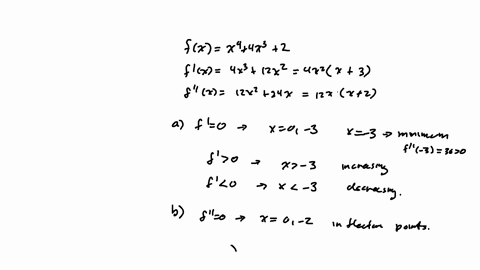 f(x) = x⁴+4x³+2
f'(x) = 4x³ + 12x² = 4x²(x + 3)
f''(x) = 12x² + 24x = 12x (x+2)
a) f'=0 → x=0, -3 x=-3 → minimum
f''(-3)=36>0
f'>0 → x>-3 increasing
f'<0 → x<-3 decreasing.
b) f''=0 → x=0,-2 inflection points.